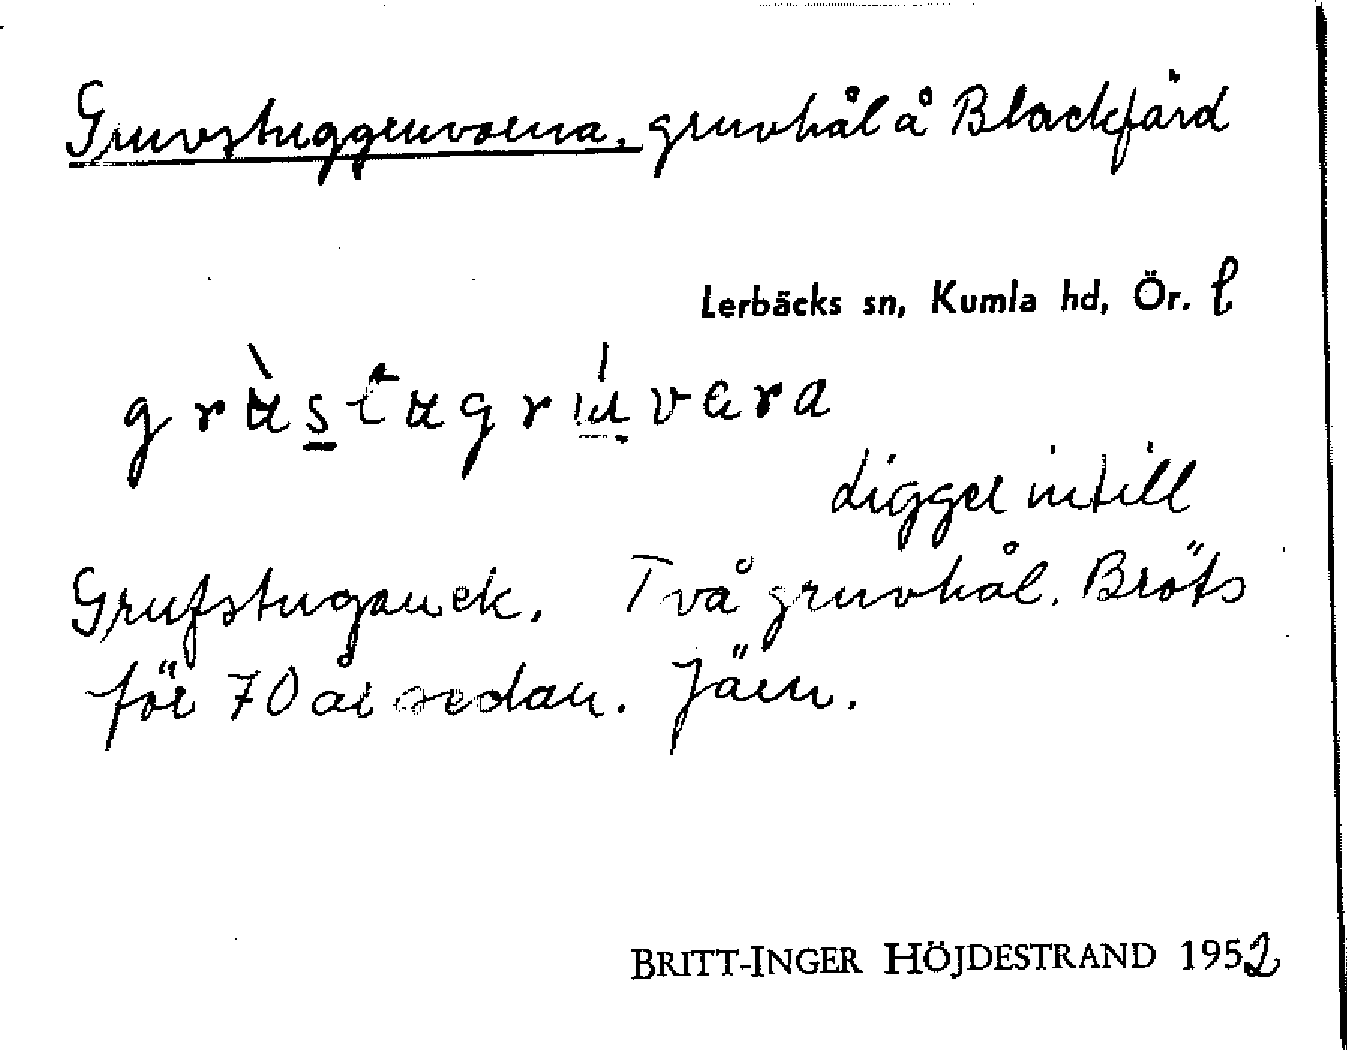 Gruvstuggruvorna, gruvhål å Blackfärd
Lerbäcks sn, Kumla hd, Ör. l
grùstugrúvara
Ligger intill
Grufstugan ek. Två gruvhål. Bröts
för 70 år sedan. Järn.
BRITT-INGER HÖJDESTRAND 1952